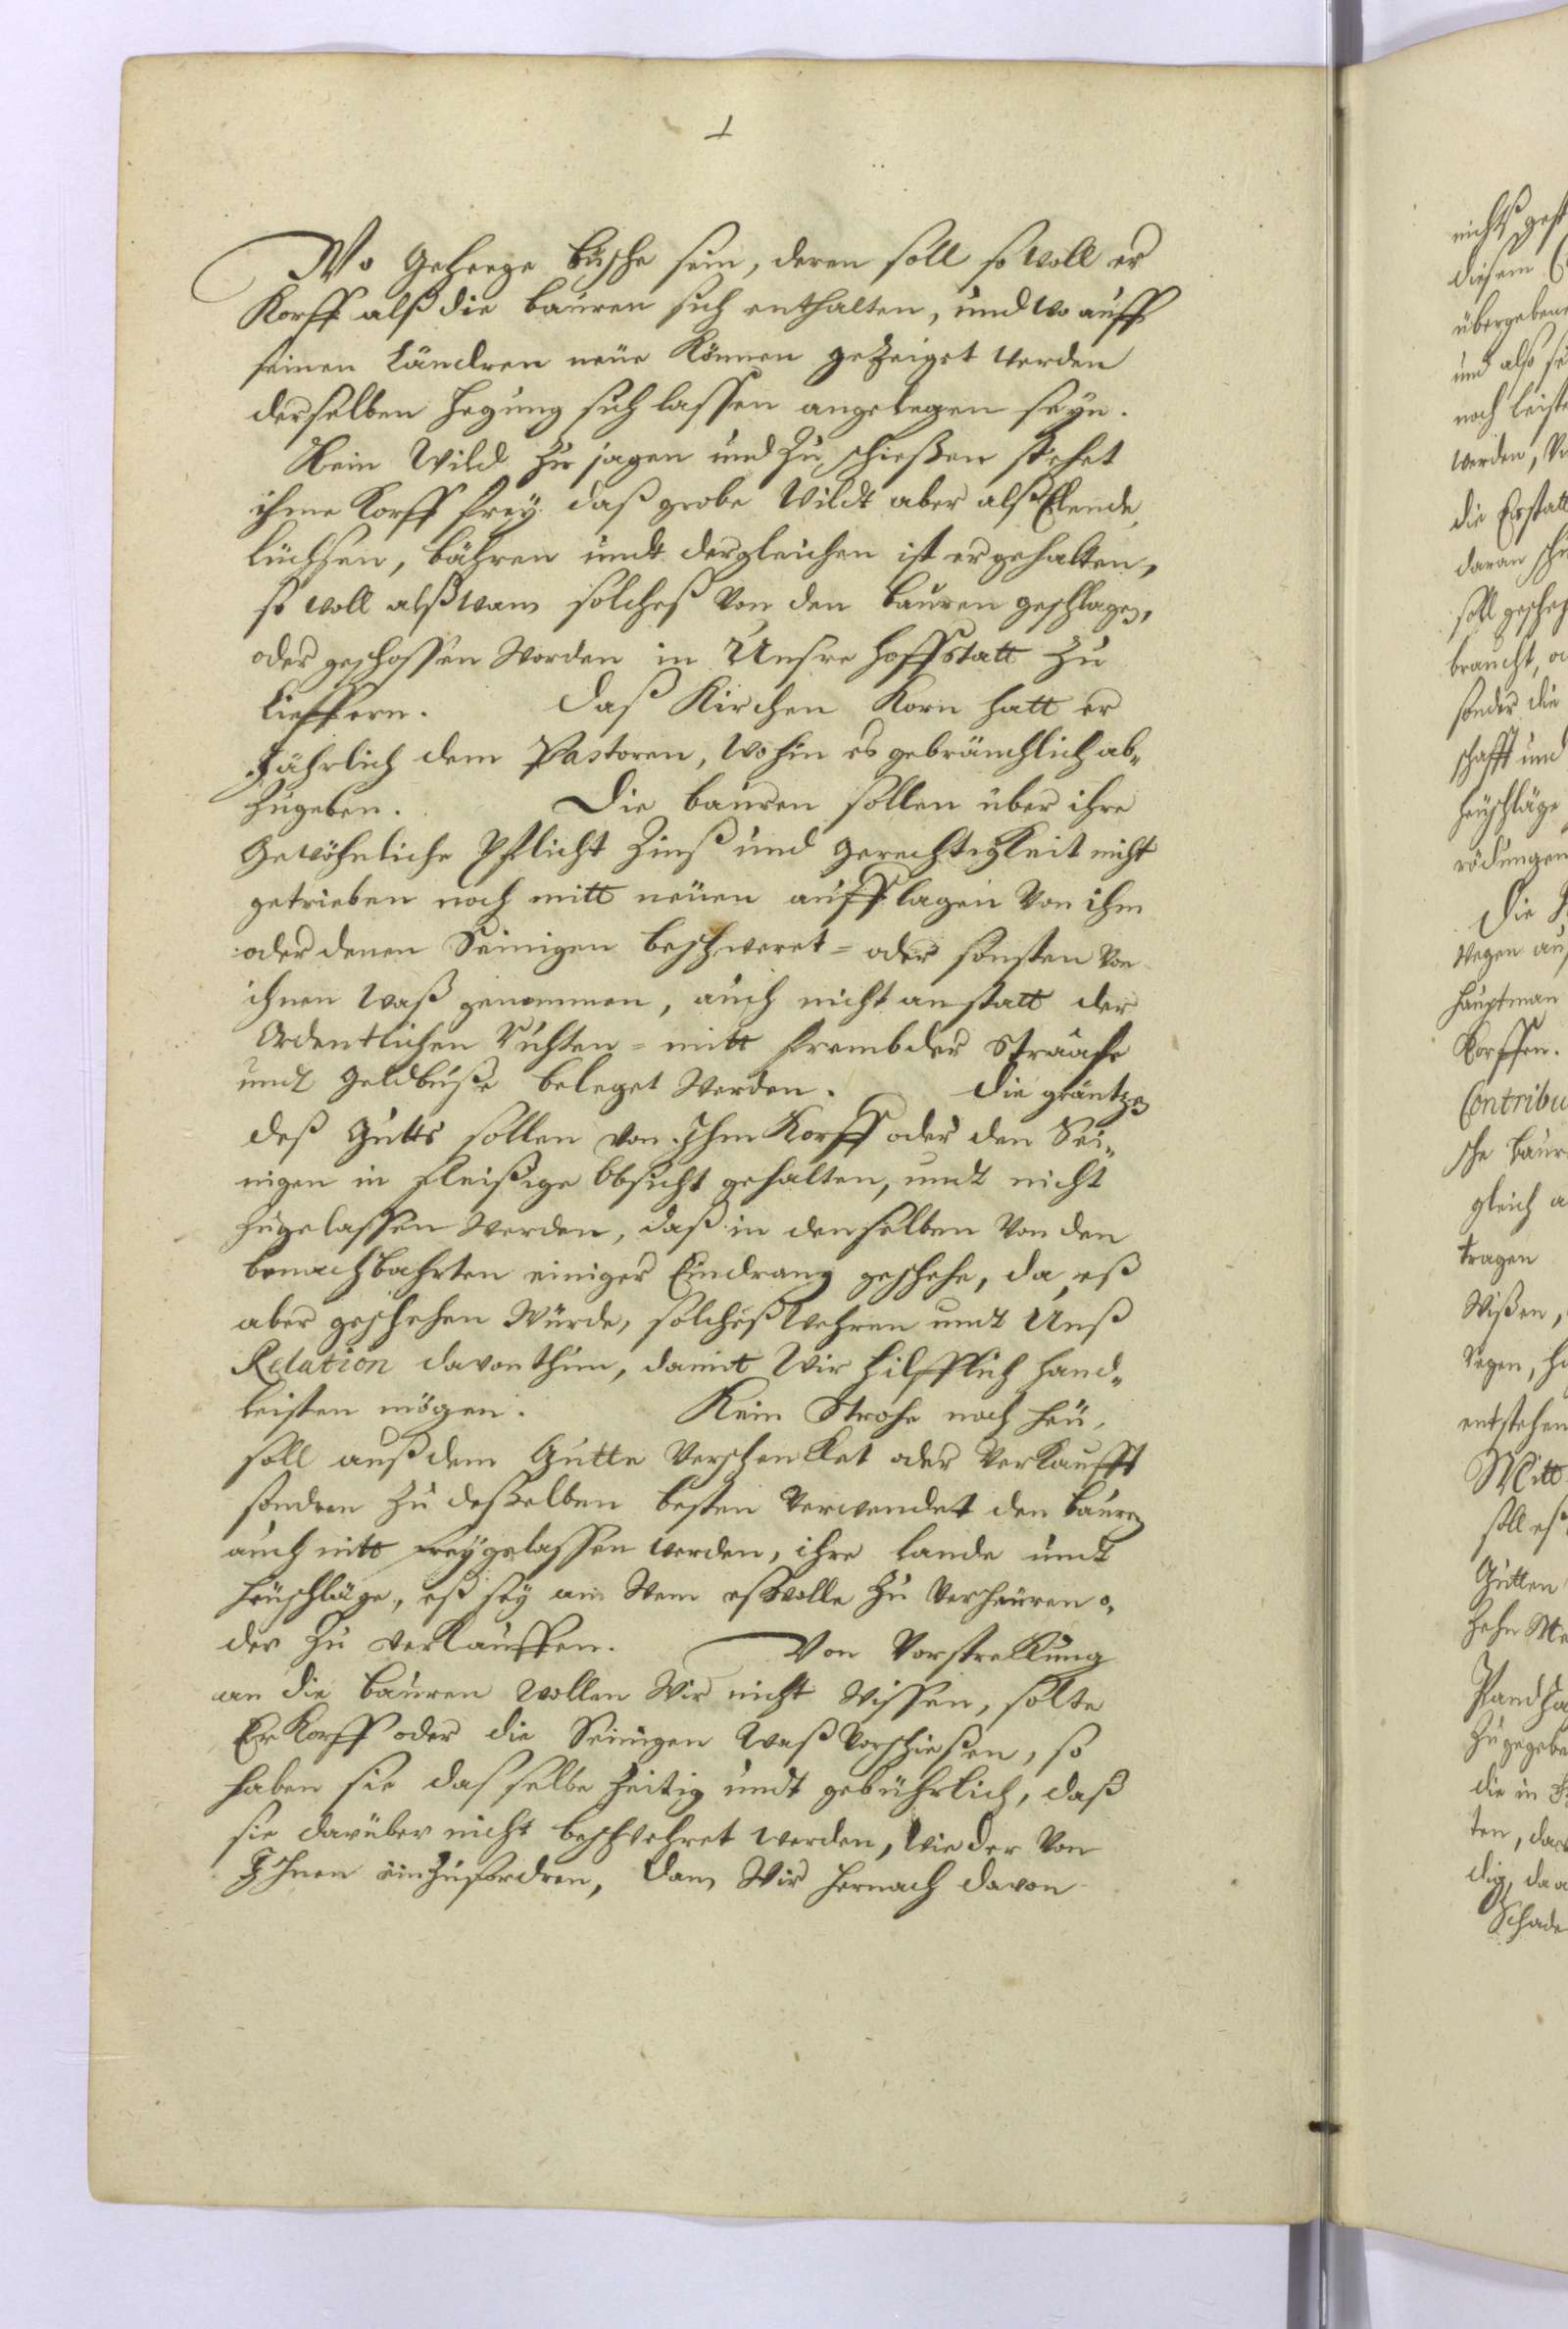 1
Wo Geheege büsche sein, deren soll so woll er
Korff alß die bauren sich enthalten, und wo auff
seinen Ländren neüe können gezeiget werden
derselben Hegung sich lassen angelegen seyn.
Klein Wild zu jagen und zu schießen stehet
ihme Korff frey daß grobe Wildt aber alß Elende,
lüchsen, bähren undt dergleichen ist er gehalten,
so woll alß wann solcheß von den bauren geschlagen,
oder geschossen worden in Unsre Hoffstatt zu
lieffern. Daß Kirchen Korn hatt er
Jährlich dem Pastoren, wohin es gebräuchlich ab-
zugeben. Die bauren sollen über ihre
Gewöhnliche Pflicht Zinß und gerechtigkeit nicht
getrieben noch mitt neüen aufflagen von ihm
oder denen Seinigen beschweret = oder sonsten von
ihnen waß genommen, auch nicht anstatt der
Ordentlichen Ruhten = mitt frembder Straafe
undt Geldbuße beleget werden. Die gräntzen
deß Gutts sollen von Ihm Korff oder den Sei-
nigen in fleißige Obsicht gehalten, undt nicht
zugelassen werden, daß in denselben von den
benachbahrten einiger Eindrang geschehe, da eß
aber geschehen würde, solcheß wehren undt Unß
Relation davon thun, damit Wir hilfflich hand-
leisten mögen. Kein Strohe noch heü,
soll auß dem Gutte verschenket oder verkaufft
sondren zu deßelben besten verwendet den bauren
auch nitt freygelassen werden, ihre lande undt
heüschläge, eß sey an wem eß wolle zu verheüren o-
der zu verkauffen. Von Vorstreckung
an die bauren wollen Wir nicht wissen, solte
Er Korff oder die Seinigen waß vorschießen, so
haben sie dasselbe zeitig undt gebührlich, daß
sie darüber nicht beschwehret werden, wieder von
Ihnen einzufordren, dann Wir hernach davon
nichtß gest
diesem
übergebene
und also
noch leiste
werden,
die Erstatt
daran
soll gescheh
braucht,
sonder die
schafft und
heüschläge
rödungen
Die
wegen auf
Hauptman
Korffen.
Contribu
sche baur
gleich a
tragen
wißen,
entstehen
Mitt
soll eß
Gutten
zehn
Pandha
zugegebe
die in
ten, das
dig, da
Schade